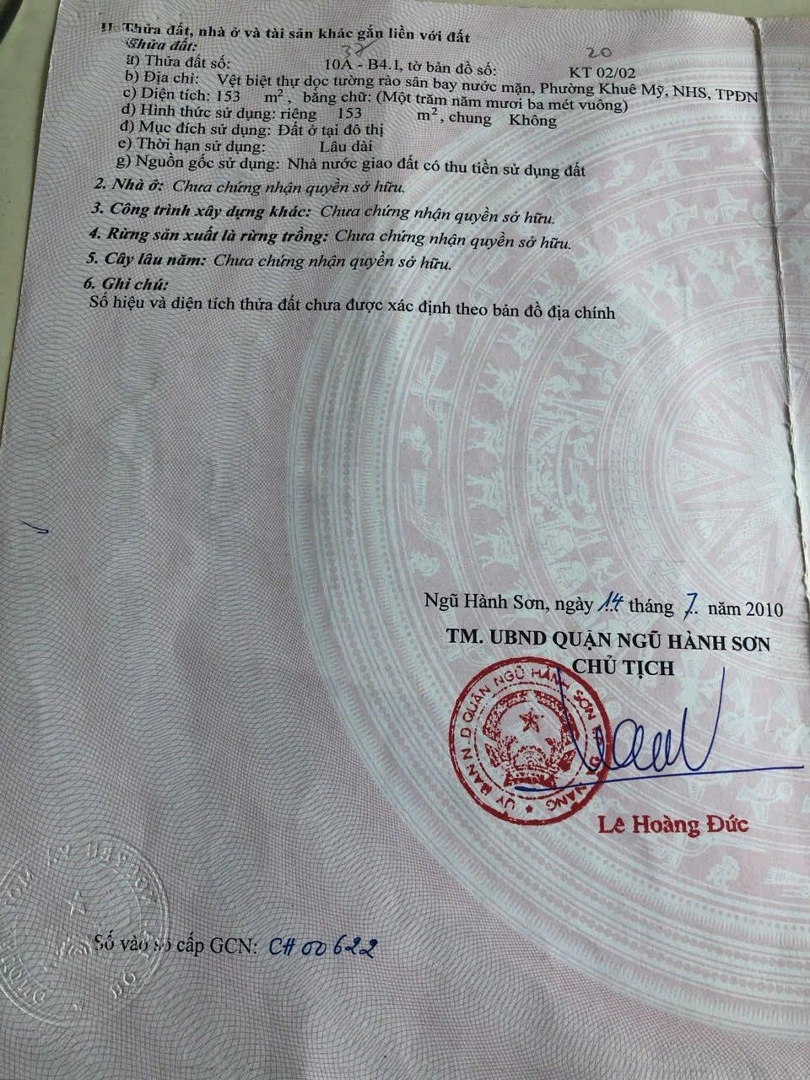 II. Thửa đất, nhà ở và tài sản khác gắn liền với đất
Thửa đất:
37 20
a) Thửa đất số: 10A - B4.1, tờ bản đồ số: KT 02/02
b) Địa chỉ: Vệt biệt thự dọc tường rào sân bay nước mặn, Phường Khuê Mỹ, NHS, TPĐN
c) Diện tích: 153 m², bằng chữ: (Một trăm năm mươi ba mét vuông)
d) Hình thức sử dụng: riêng 153 m², chung Không
đ) Mục đích sử dụng: Đất ở tại đô thị
e) Thời hạn sử dụng: Lâu dài
g) Nguồn gốc sử dụng: Nhà nước giao đất có thu tiền sử dụng đất
2. Nhà ở: Chưa chứng nhận quyền sở hữu.
3. Công trình xây dựng khác: Chưa chứng nhận quyền sở hữu.
4. Rừng sản xuất là rừng trồng: Chưa chứng nhận quyền sở hữu.
5. Cây lâu năm: Chưa chứng nhận quyền sở hữu.
6. Ghi chú:
Số hiệu và diện tích thửa đất chưa được xác định theo bản đồ địa chính
Ngũ Hành Sơn, ngày 14 tháng 7. năm 2010
TM. UBND QUẬN NGŨ HÀNH SƠN
CHỦ TỊCH
ỦY BAN N.D QUẬN NGŨ HÀNH SƠN
Lê Hoàng Đức
Số vào sổ cấp GCN: CH 00622